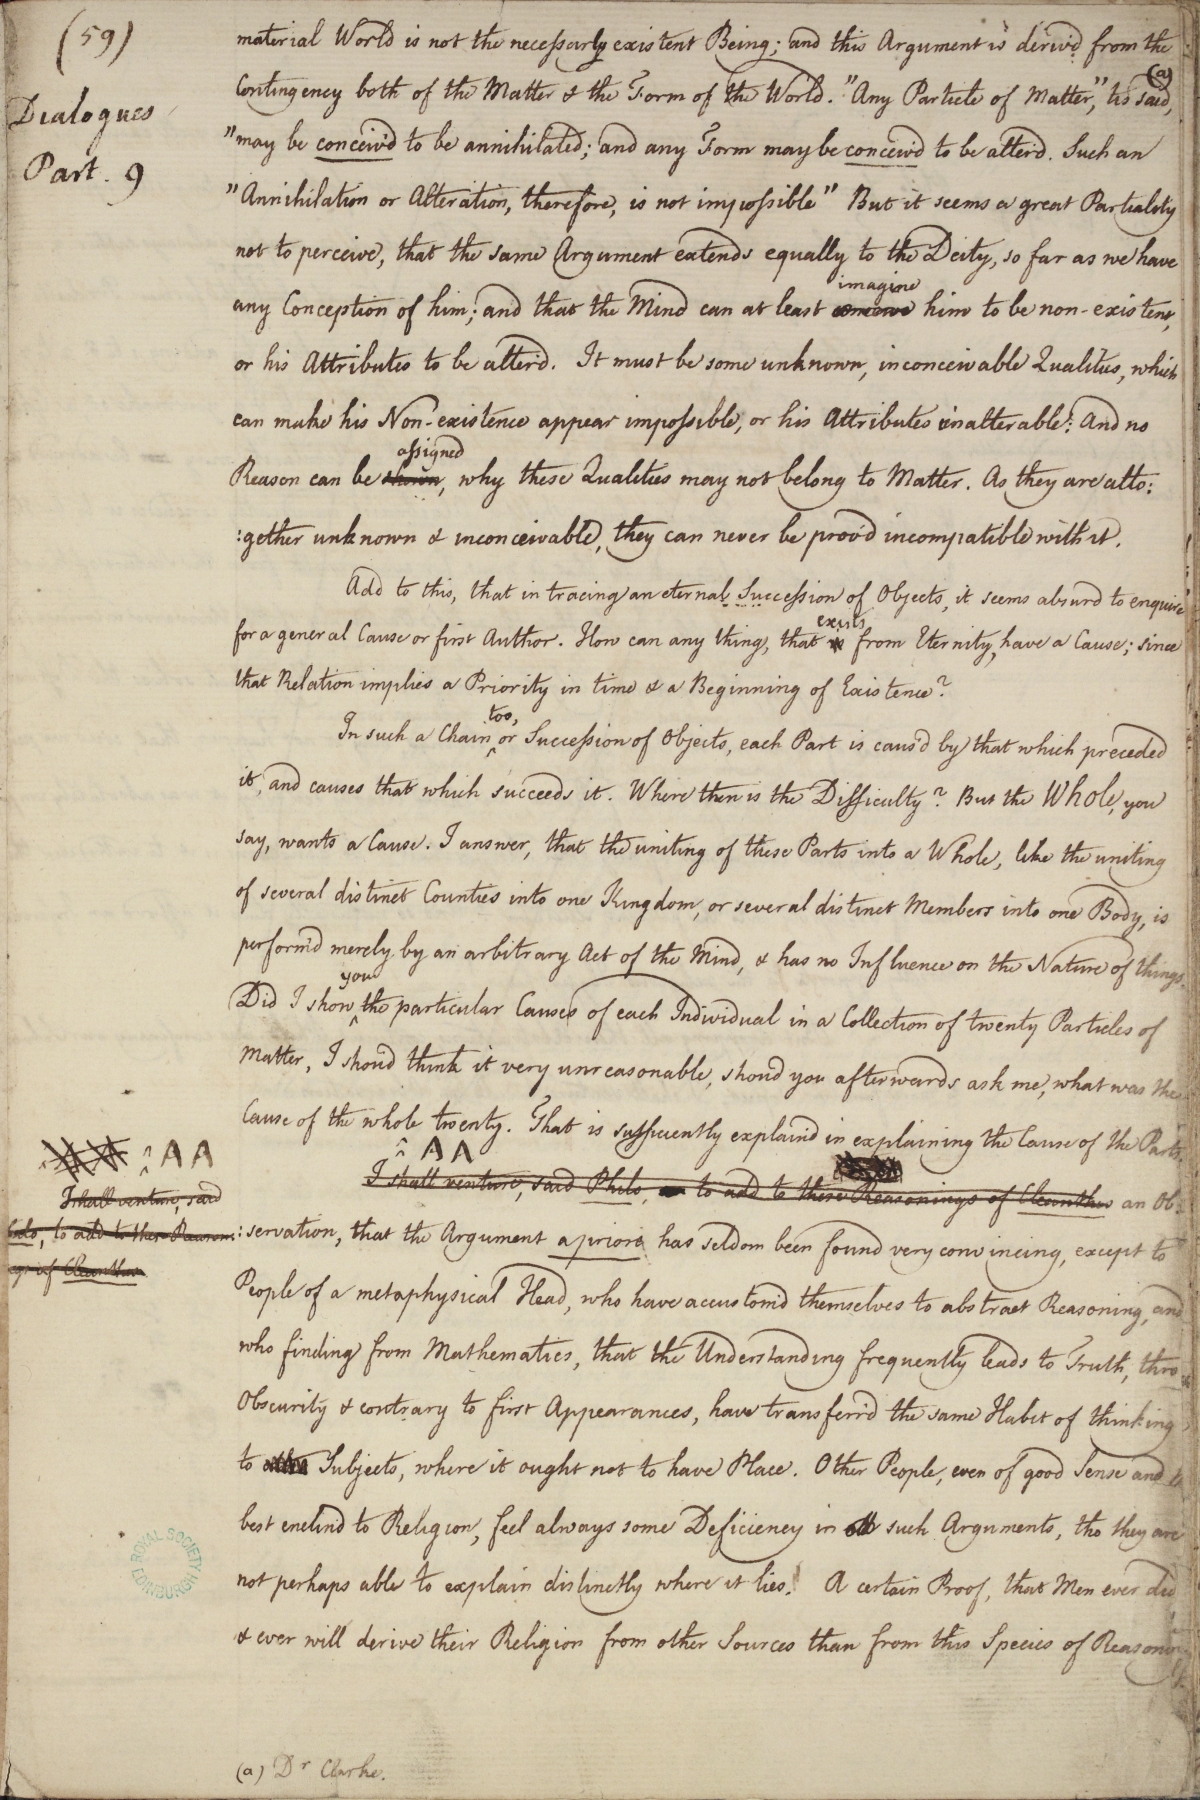 (59)
Dialogues
Part. 9
material World is not the necessarly existent Being; and this Argument is deriv'd from the
Contingency both of the Matter & the Form of the World. "Any Particle of Matter," 'tis said, (a)
"may be conceiv'd to be annihilated; and any Form may be conceiv'd to be alter'd. Such an
"Annihilation or Alteration, therefore, is not impossible" But it seems a great Partiality
not to perceive, that the same Argument extends equally to the Deity, so far as we have
imagine
any Conception of him; and that the Mind can at least conceive him to be non-existent,
or his Attributes to be alter'd. It must be some unknown, inconceivable Qualities, which
can make his Non-existence appear impossible, or his Attributes inalterable: And no
assigned
Reason can be shown, why these Qualities may not belong to Matter. As they are alto:
:gether unknown & inconceivable, they can never be prov'd incompatible with it.
Add to this, that in tracing an eternal Succession of Objects, it seems absurd to enquire
exists
for a general Cause or first Author. How can any thing, that is from Eternity, have a Cause; since
that Relation implies a Priority in time & a Beginning of Existence?
too,
In such a Chain ^ or Succession of Objects, each Part is caus'd by that which preceded
it, and causes that which succeeds it. Where then is the Difficulty? But the Whole, you
say, wants a Cause. I answer, that the uniting of these Parts into a Whole, like the uniting
of several distinct Counties into one Kingdom, or several distinct Members into one Body, is
perform'd merely by an arbitrary Act of the Mind, & has no Influence on the Nature of things.
you
Did I show ^ the particular Causes of each Individual in a Collection of twenty Particles of
Matter, I shou'd think it very unreasonable, shou'd you afterwards ask me, what was the
Cause of the whole twenty. That is sufficiently explain'd in explaining the Cause of the Parts.
^ AA
^ AA
I shall venture, said Philo, to add to these Reasonings of Cleanthes an Ob:
I shall venture, said
Philo, to add to these Reason:
ngs of Cleanthes
:servation, that the Argument a priori has seldom been found very convincing, except to
People of a metaphysical Head, who have accustom'd themselves to abstract Reasoning, and
who finding from Mathematics, that the Understanding frequently leads to Truth, thro
Obscurity & contrary to first Appearances, have transferr'd the same Habit of thinking
to Subjects, where it ought not to have Place. Other People, even of good Sense and
best enclin'd to Religion, feel always some Deficiency in all such Arguments, tho they are
not perhaps able to explain distinctly where it lies. A certain Proof, that Men ever did
& ever will derive their Religion from other Sources than from this Species of Reasoning.
ROYAL SOCIETY
EDINBURGH
(a) Dr Clarke.